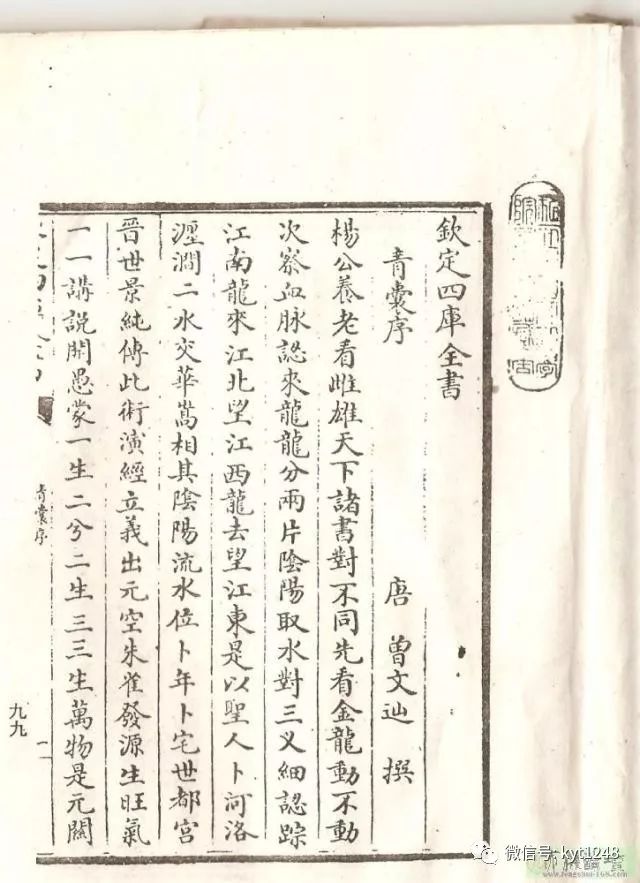 欽定四庫全書
青囊序
唐 曾文辿 撰
楊公養老看雌雄天下諸書對不同先看金龍動不動
次察血脉認來龍龍分兩片陰陽取水對三义細認踪
江南龍來江北望江西龍去望江東是以聖人卜河洛
瀍澗二水交華嵩相其陰陽流水位卜年卜宅世都宮
晋世景純傳此術演經立義出元空朱雀發源生旺氣
一一講說開愚蒙一生二兮二生三三生萬物是元關
青囊序
九九
微信号: kyt1248
www.fengshui-168.com